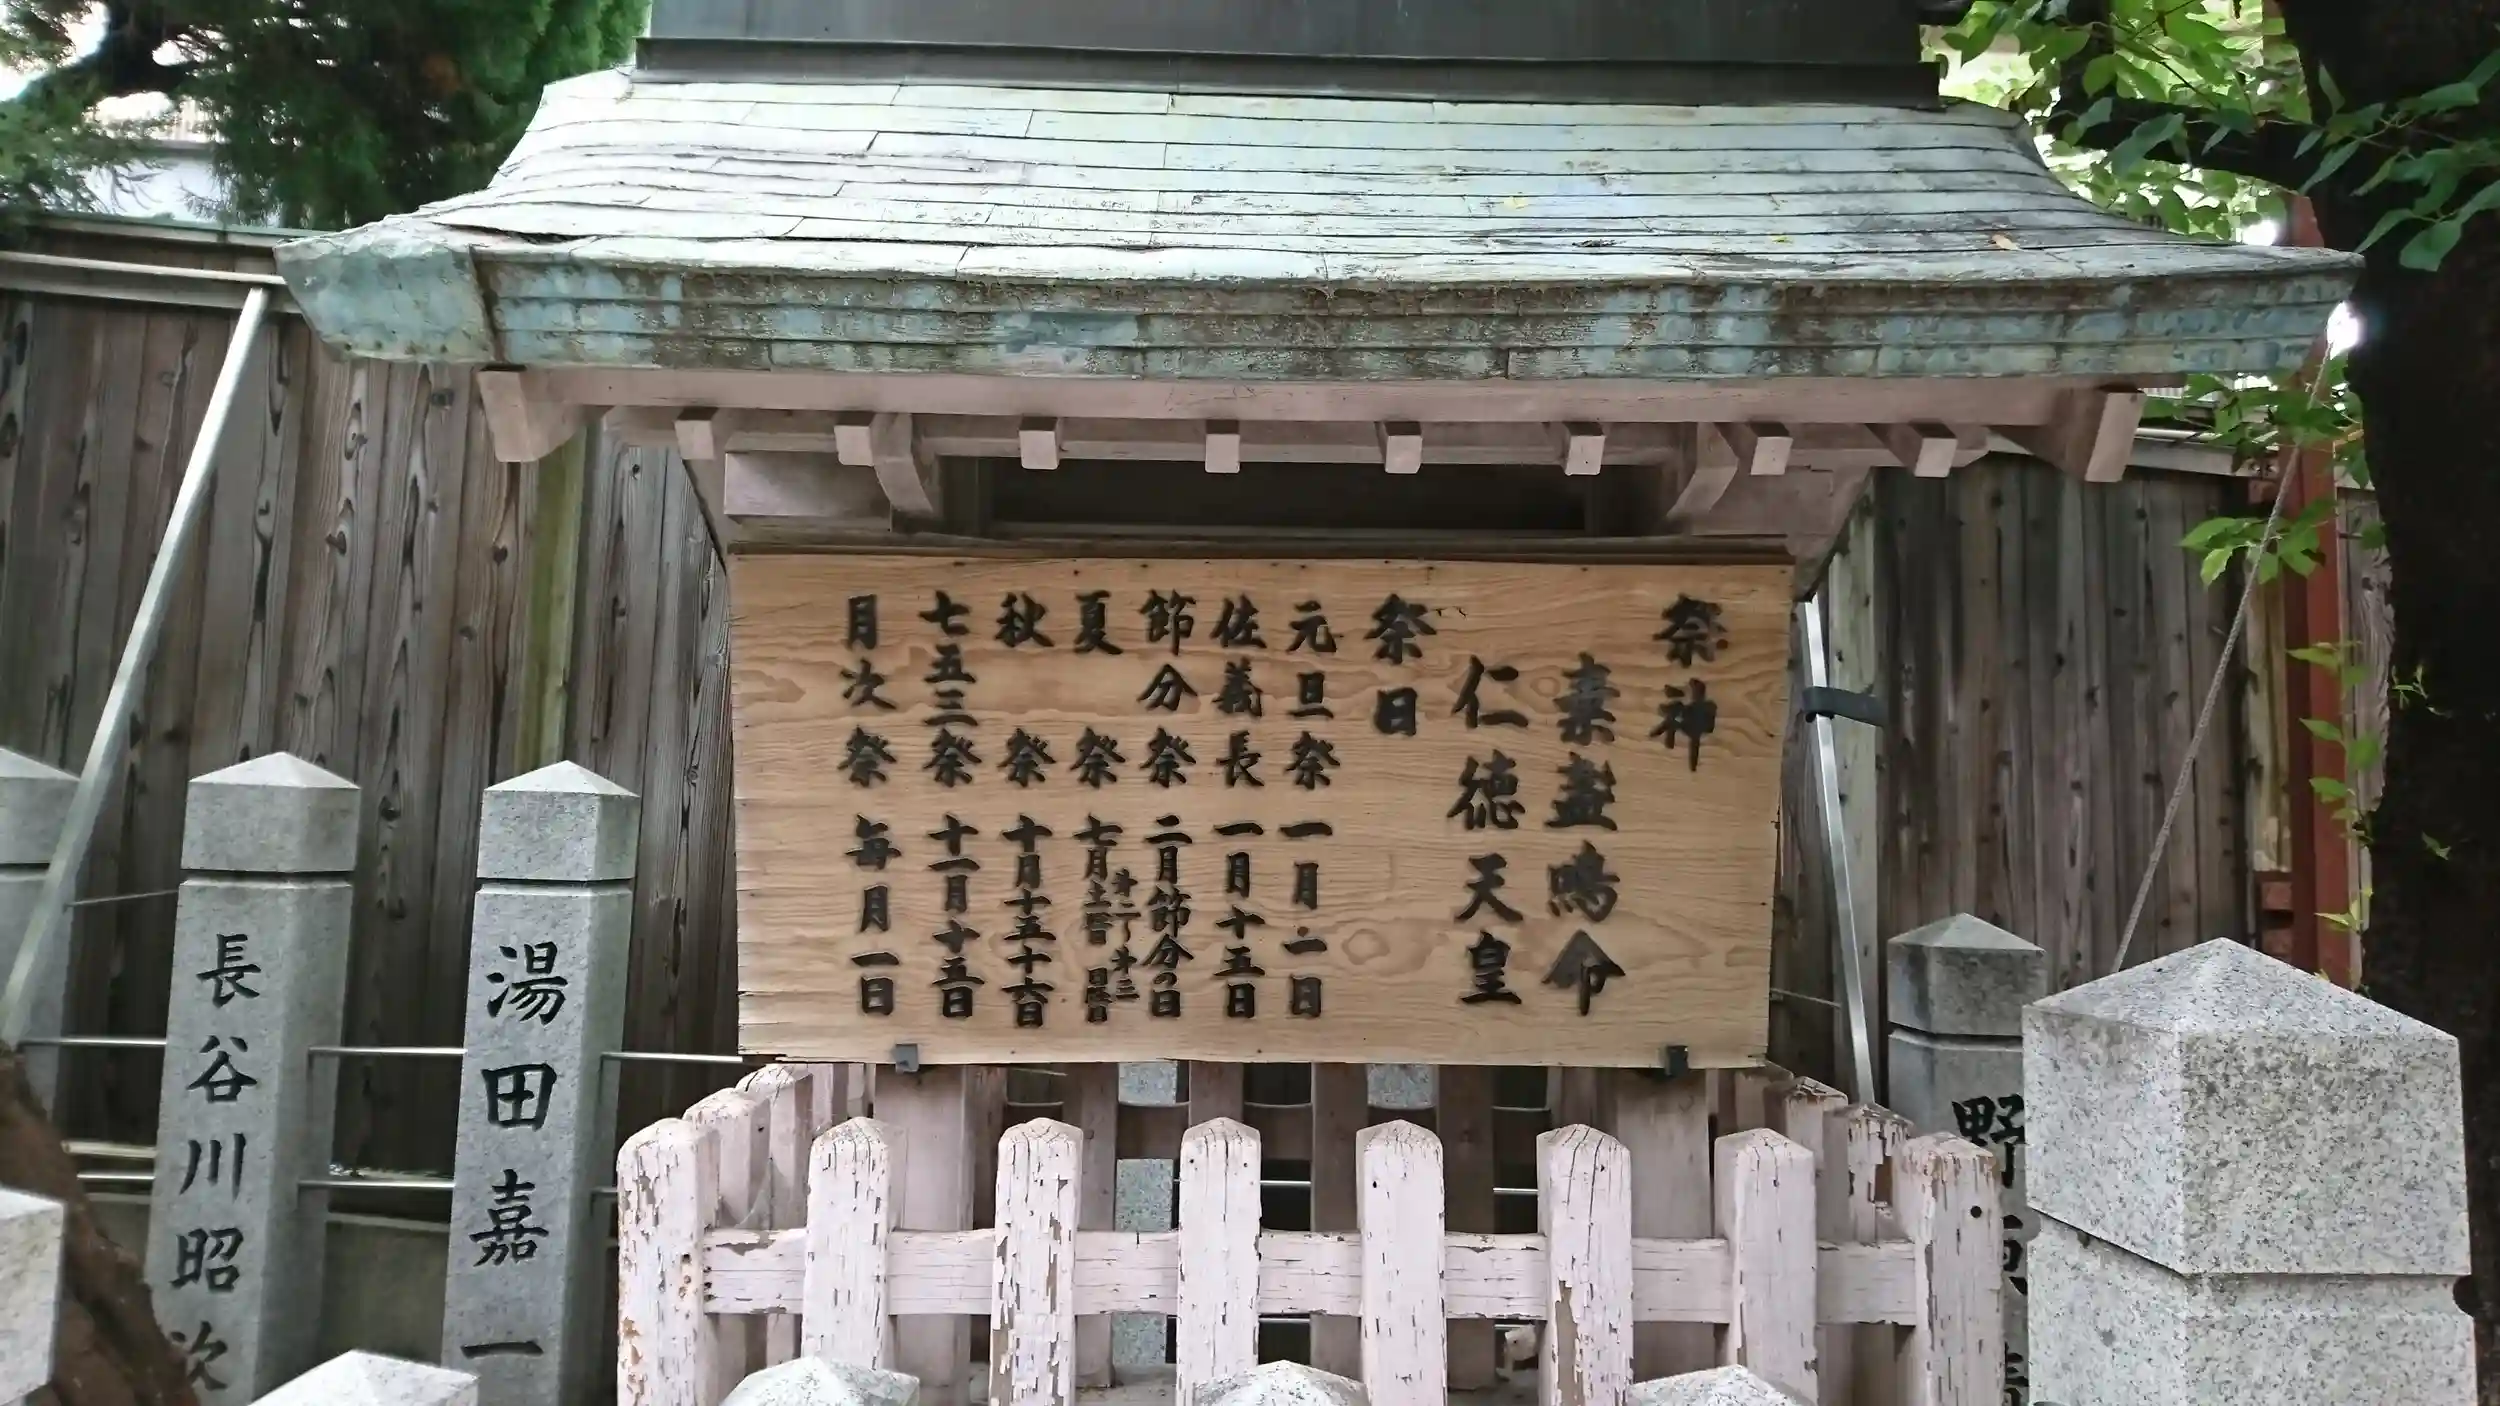 祭神
素盞嗚命
仁徳天皇
祭日
元旦祭 一月一日
佐義長 一月十五日
節分祭 二月節分の日
夏祭 七月第二又ハ第三土曜日曜
秋祭 十月十五十六日
七五三祭 十一月十五日
月次祭 毎月一日
湯田嘉一
長谷川昭次
野